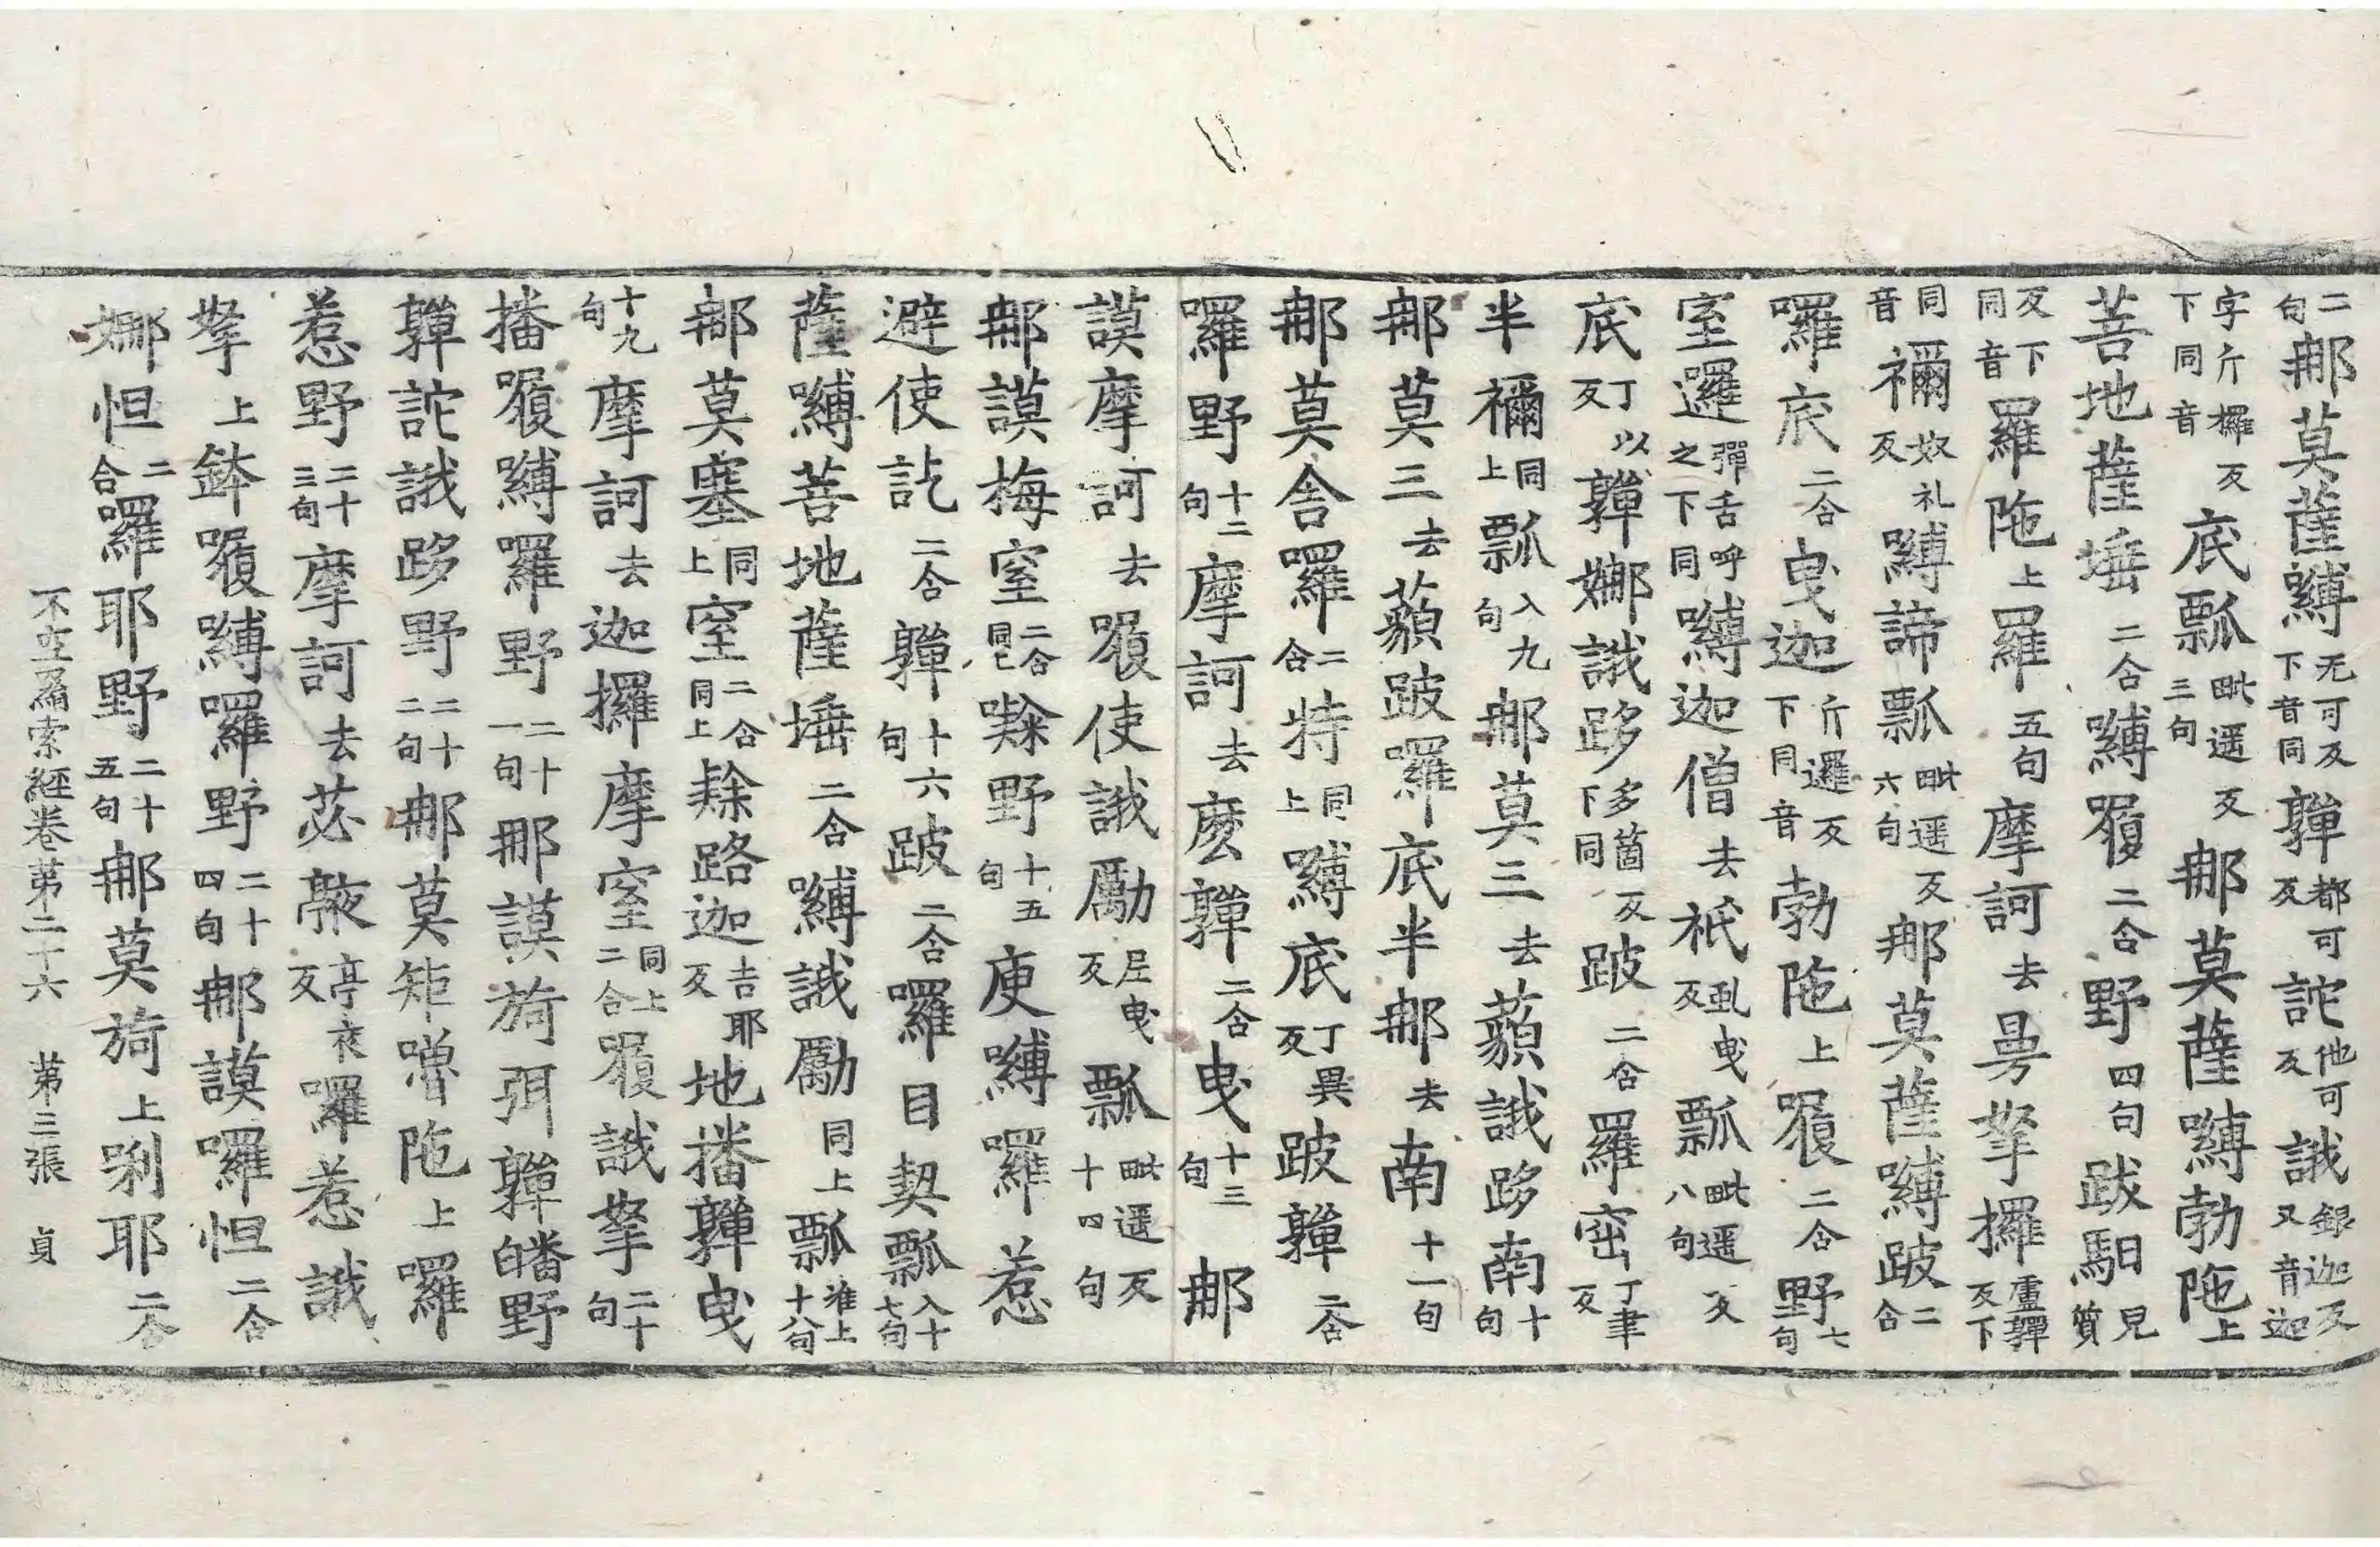 二句 那莫薩嚩无可反下音同 亸都可反 詑他可反 誐銀迦反又音迦
字斤攞反下同音 底瓢毗遥反三句 那莫薩嚩勃陁上
菩地薩埵二合 嚩履二合 野四句 跋馹見質
反下同音 羅陁上 羅五句 摩訶去 曼拏攞盧亸反下
同音 禰奴礼反 嚩諦瓢毗遥反六句 那莫薩嚩跛二合
囉底二合 曳迦斤邏反下同音 勃陁上 履二合 野七句
室邏彈舌呼之下同 嚩迦僧去 祇虬曳反 瓢毗遥反八句
底丁以反 亸娜誐跢多箇反下同 跛二合 羅蜜丁聿反
半禰同上 瓢入九句 那莫三去 藐誐跢南十句
那莫三去 藐跛囉底半那去 南十一句
那莫舍囉二合 特同上 嚩底丁異反 跛亸二合
囉野十二句 摩訶去 麽亸二合 曳十三句 那
謨摩訶去 履使誐勵𡰱曳反 瓢毗遥反十四句
那謨梅窒二合同上 㘑野十五句 庾嚩囉惹
避使訖二合 亸十六句 跛二合 囉目契瓢入十七句
薩嚩菩地薩埵二合 嚩誐勵同上 瓢准上十八句
那莫塞同上 窒二合同上 𨽻路迦吉耶反 地播亸曳
十九句 摩訶去 迦攞摩窒同上二合 履誐拏二十句
播履嚩羅野二十一句 那謨旖弭亸皤野
亸詑誐跢野二十二句 那莫矩嚕陁上 囉
惹野二十三句 摩訶去 苾㰠亭夜反 囉惹誐
拏上 鉢履嚩囉野二十四句 那謨囉怛二合
娜怛二合 囉耶野二十五句 那莫旖上 唎耶二合
不空羂索經卷苐二十六 苐三張 貞